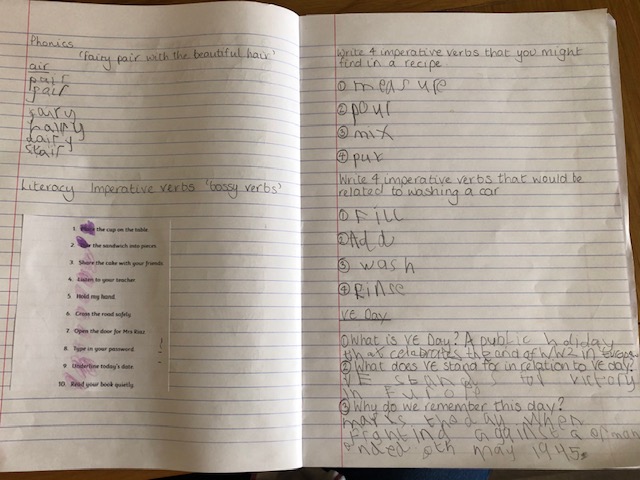 Phonics
'fairy pair with the beautiful hair'
air
pair
pair
fairy
hairy
dairy
stair
Literacy Imperative verbs 'bossy verbs'
1. Place the cup on the table.
2. the sandwich into pieces.
3. Share the cake with your friends.
4. Listen to your teacher.
5. Hold my hand.
6. Cross the road safely.
7. Open the door for Mrs
8. Type in your password.
9. Underline today's date.
10. Read your book quietly.
Write 4 imperative verbs that you might
find in a recipe
① measure
② pour
③ mix
④ put
Write 4 imperative verbs that would be
related to washing a car
① Fill
② Add
③ wash
④ Rinse
VE Day
① What is VE Day? A public holiday
that celebrates the end of WW2 in Europe
② What does VE stand for in relation to VE day?
VE stands for victory
in Europe
③ Why do we remember this day?
marks the day when
Fighting against
8th may 1945.